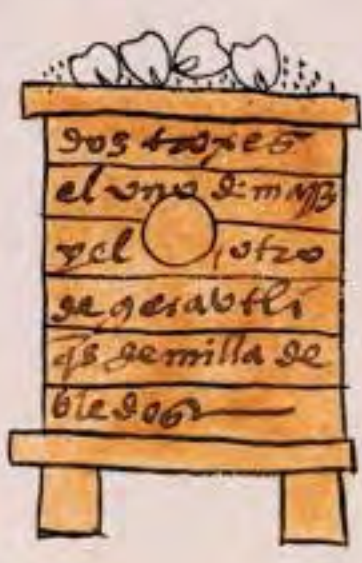 dos troxes
el vno de mayz
y el otro
de guavtli
q̃s semilla de
bledos